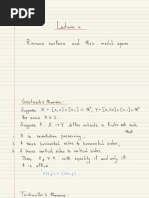 Lecture 11
Riemann surfaces and their moduli spaces
Grötzsch's theorem :
Suppose X = [0,a]×[0,1] ⊂ ℝ², Y = [0,K·a]×[0,1] ⊂ ℝ²
for some K ≥ 1
Suppose f : X → Y diffeo outside a finite set such
that
1. f is orientation preserving.
2. f maps horizontal sides to horizontal sides.
3. f maps vertical sides to vertical sides.
Then, K_f ≥ K with equality if and only if
f is affine
Teichmüller's theorem :